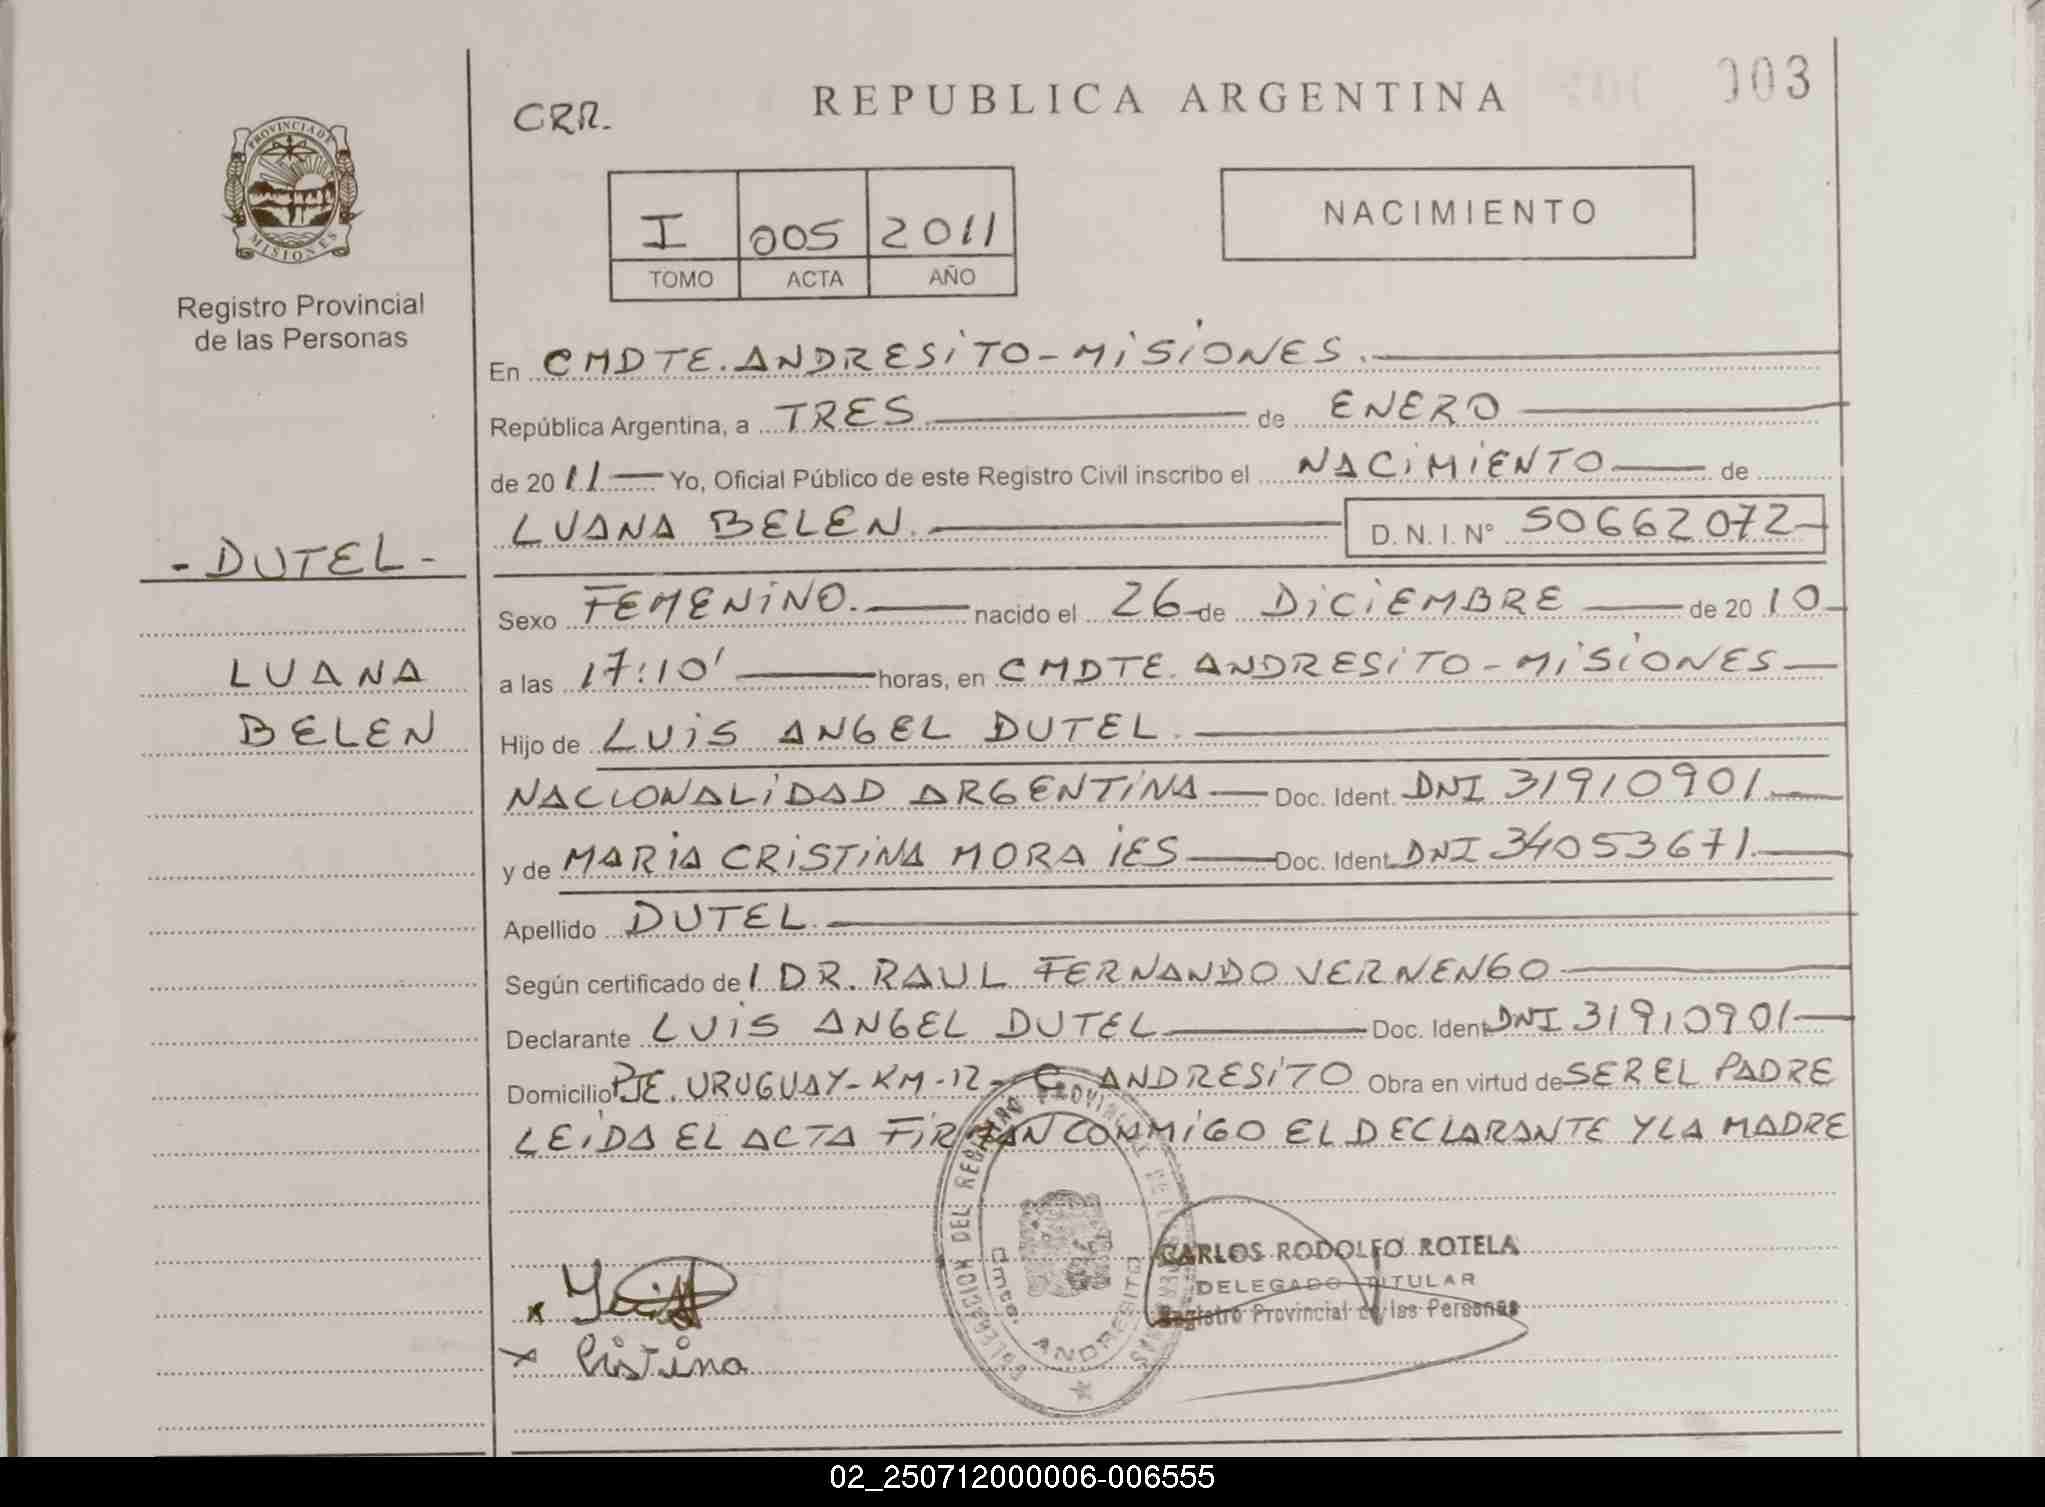 CRR.
REPUBLICA ARGENTINA
003
PROVINCIA DE
MISIONES
Registro Provincial
de las Personas
I 005 2011
TOMO ACTA AÑO
NACIMIENTO
En CMDTE. ANDRESITO - MISIONES.
República Argentina, a TRES de ENERO
de 2011 Yo, Oficial Público de este Registro Civil inscribo el NACIMIENTO de
LUANA BELEN. D. N. I. N° 50662072
- DUTEL -
LUANA
BELEN
Sexo FEMENINO. nacido el 26 de DICIEMBRE de 2010
a las 17:10' horas, en CMDTE. ANDRESITO - MISIONES
Hijo de LUIS ANGEL DUTEL.
NACIONALIDAD ARGENTINA Doc. Ident. DNI 31910901.
y de MARIA CRISTINA MORAIES Doc. Ident. DNI 34053671.
Apellido DUTEL.
Según certificado del DR. RAUL FERNANDO VERNENGO
Declarante LUIS ANGEL DUTEL Doc. Ident. DNI 31910901
Domicilio PJE. URUGUAY - KM - 12 - C. ANDRESITO Obra en virtud de SER EL PADRE
LEIDA EL ACTA FIRMAN CONMIGO EL DECLARANTE Y LA MADRE
DELEGACION DEL REGISTRO PROVINCIAL DE LAS PERSONAS
Cmte. ANDRESITO
CARLOS RODOLFO ROTELA
DELEGADO TITULAR
Registro Provincial de las Personas
x
x Cristina
02_250712000006-006555